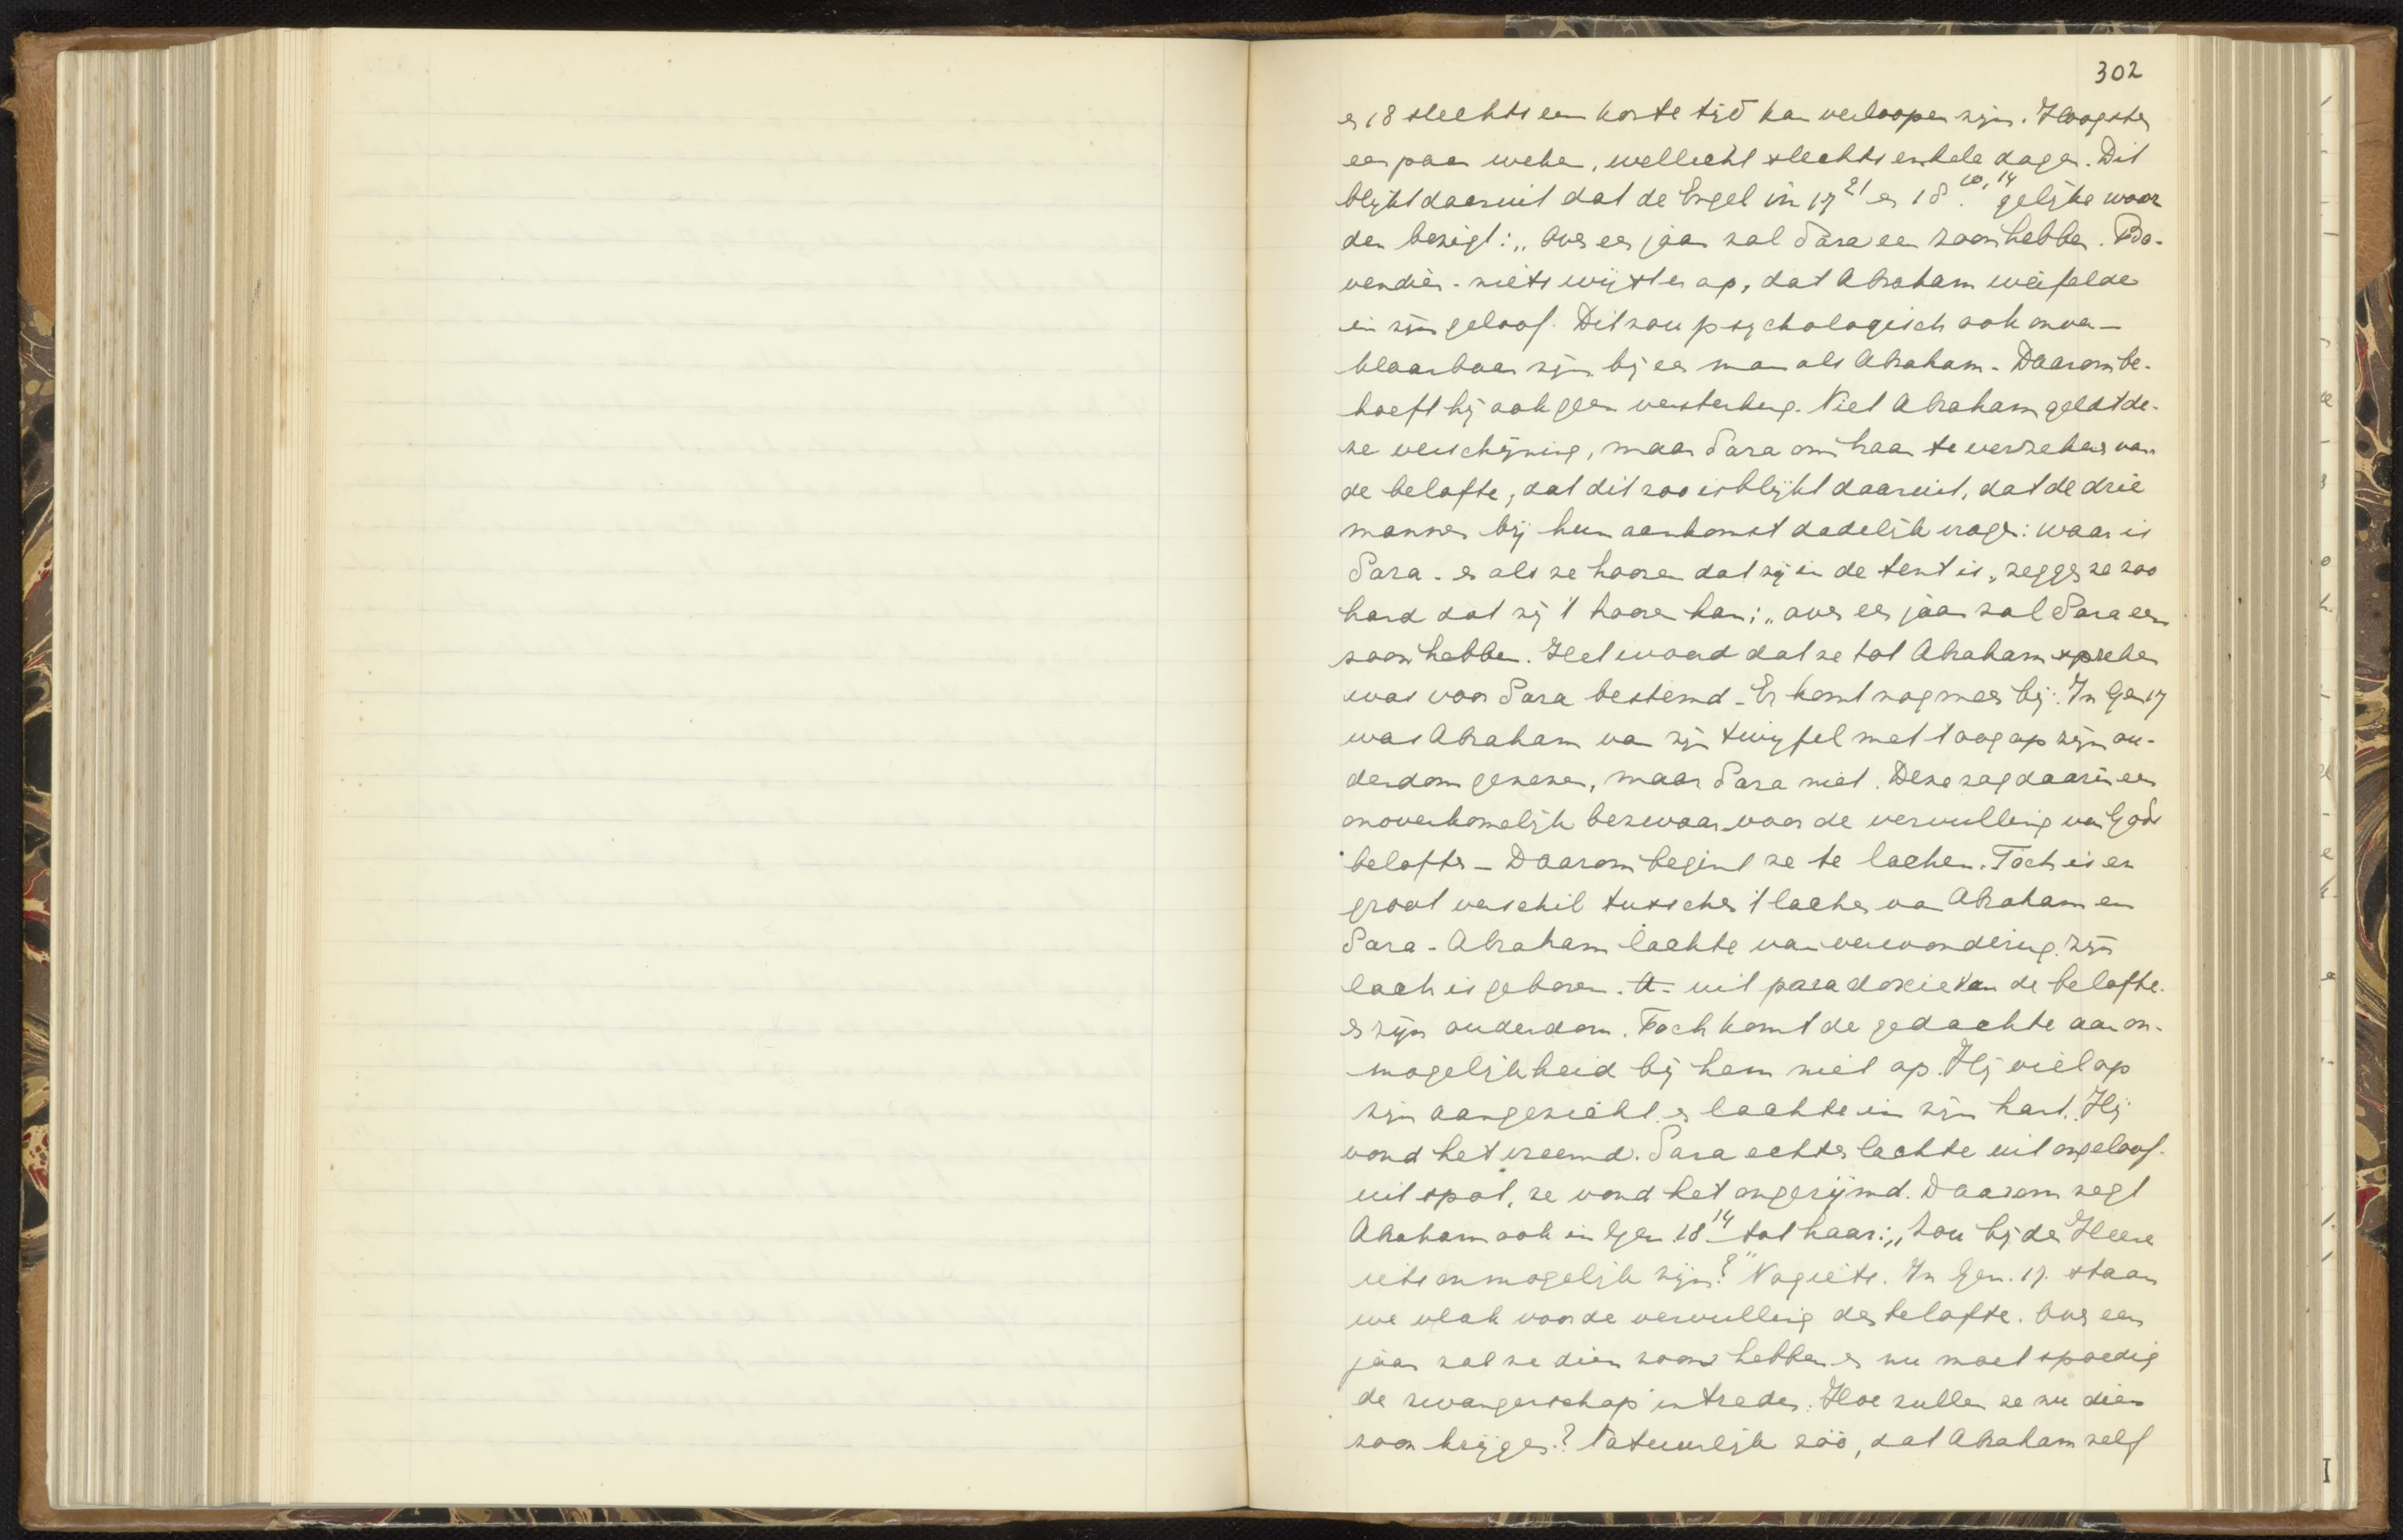 302
en 18 slechts een korte tijd kan verloopen zijn. Hoogstens
een paar weken, wellicht slechts enkele dagen. Dit
blijkt daaruit dat de Engel in 17 21 en 18 10, 14 gelijke woor
den bezigt: „Over een jaar zal Sara een zoon hebben. Bo-
vendien - niets wijst er op, dat Abraham weifelde
in zijn geloof. Dit zou psychologisch ook onver-
klaarbaar zijn bij een man als Abraham - Daarom be-
hoeft hij ook geen versterking. Niet Abraham geldt de-
ze verschijning, maar Sara om haar te verzekeren van
de belofte, dat dit zoo is blijkt daaruit, dat de drie
mannen bij hun aankomst dadelijk vragen: waar is
Sara - en als ze hooren dat zij in de tent is, zeggen ze zoo
hard dat zij 't hooren kan: „over een jaar zal Sara een
zoon hebben. Het woord dat ze tot Abraham spreken
was voor Sara bestemd - Er komt nog meer bij: In Gen 17
was Abraham van zijn twijfel met 't oog op zijn ou-
derdom genezen, maar Sara niet. Deze zag daarin een
onoverkomelijk bezwaar voor de vervulling van Gods
belofte - Daarom begint ze te lachen. Toch is er
groot verschil tusschen 't lachen van Abraham en
Sara - Abraham lachte van verwondering. Zijn
lach is geboren. uit paradoxie van de belofte.
en zijn ouderdom. Toch komt de gedachte aan on-
mogelijkheid bij hem niet op. Hij viel op
zijn aangezicht en lachte in zijn hart. Hij
vond het vreemd. Sara echter lachte uit ongeloof.
uit spot, ze vond het ongerijmd. Daarom zegt
Abraham ook in Gen. 18 14 tot haar: „Zou bij den Heere
iets onmogelijk zijn?" Nog iets. In Gen. 17. staan
we vlak voor de vervulling der belofte. Over een
jaar zal ze dien zoon hebben en nu moet spoedig
de zwangerschap intreden. Hoe zullen ze nu dien
zoon krijgen? Natuurlijk zóó, dat Abraham zelf